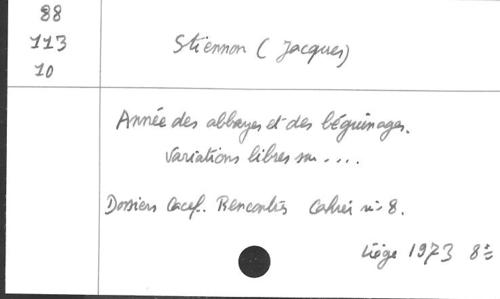 88
113
10
Stiennon (Jacques)
Année des abbayes et des béguinages.
Variations libres sur ....
Dossiers Cacef. Rencontres Cahier n° 8.
Liège 1973 8°